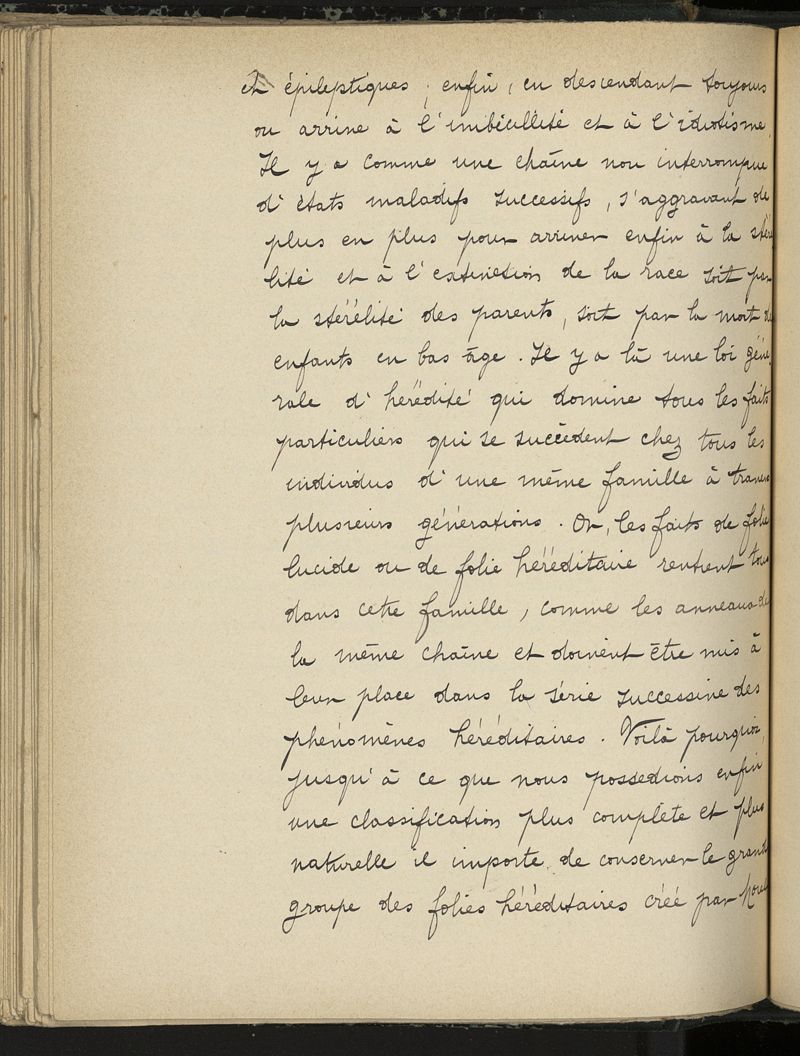 et épileptiques ; enfin, en descendant toujours
ou arrive à l'imbécillité et à l'idiotisme.
Il y a comme une chaîne non interrompue
d'états maladifs successifs, s'aggravant de
plus en plus pour arriver enfin à la stéri
lité et à l'extinction de la race soit par
la stérélité des parents, soit par la mort
enfants en bas âge. Il y a là une loi géné
rale d'hérédité qui domine tous les faits
particuliers qui se succèdent chez tous les
individus d'une même famille à travers
plusieurs générations. Or, les faits de folie
lucide ou de folie héréditaire rentrent tous
dans cette famille, comme les anneaux de
la même chaîne et doivent être mis à
leur place dans la série successive des
phénomènes héréditaires. Voilà pourquoi,
jusqu'à ce que nous possedions enfin
une classification plus complète et plus
naturelle il importe de conserver le grand
groupe des folies héréditaires créé par Morel